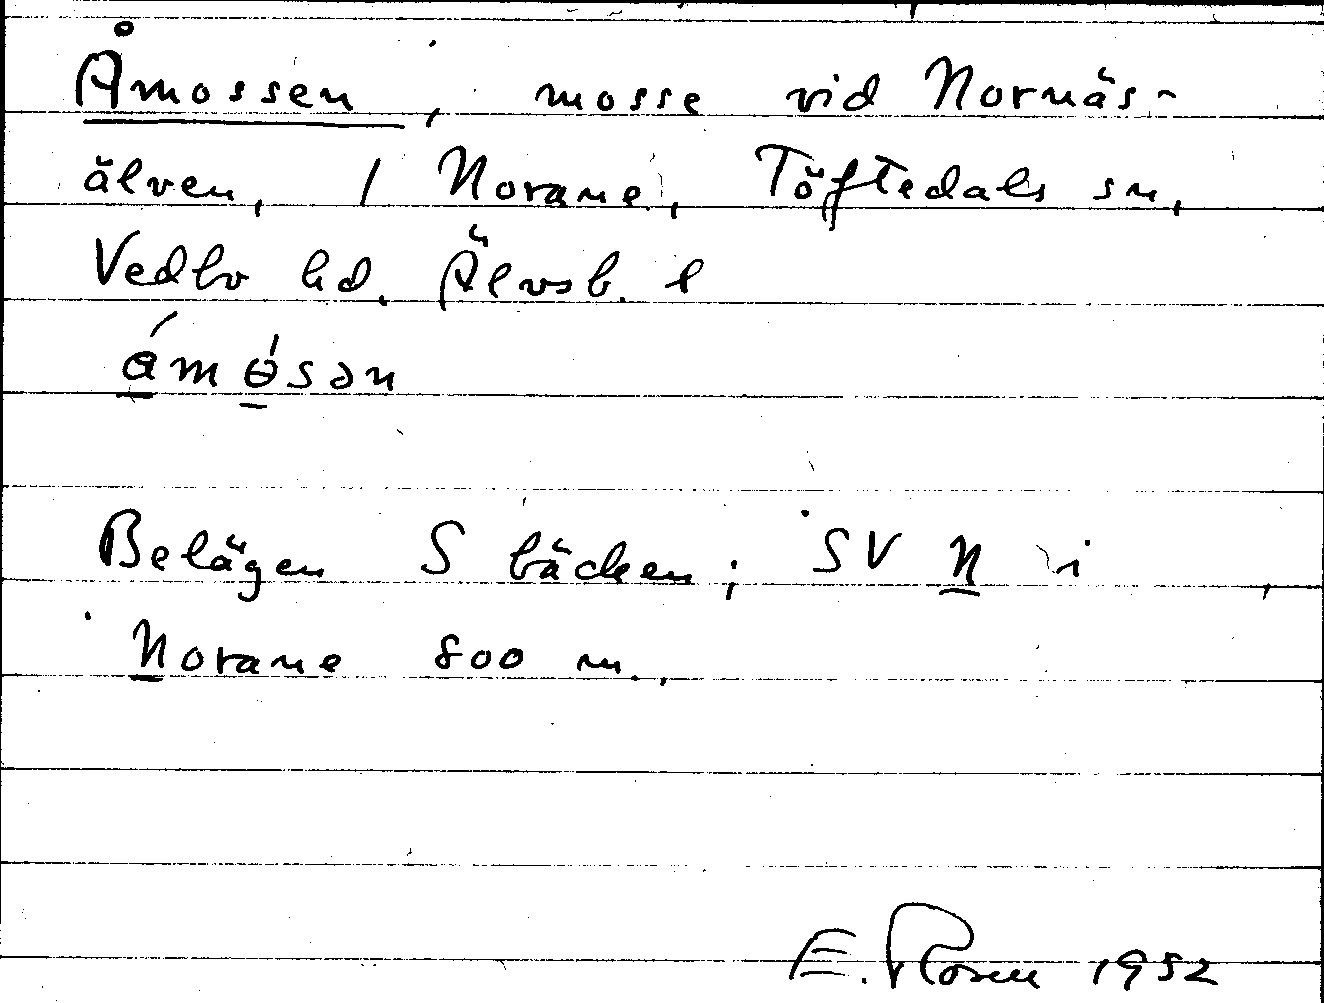 Åmossen, mosse vid Nornäs-
älven, 1 Norane, Töftedals sn,
Vedbo hd. Älvsb. l
ámɵ́sən
Belägen S bäcken; SV N i
Norane 800 m.
E. Rosen 1952